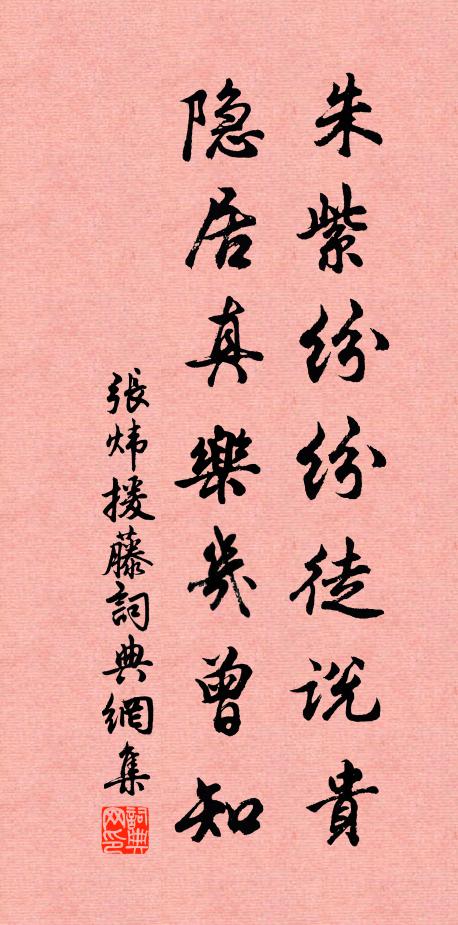 朱紫纷纷徒说貴
隐居真樂幾曾知
張炜援藤詞典網集
詞典网印